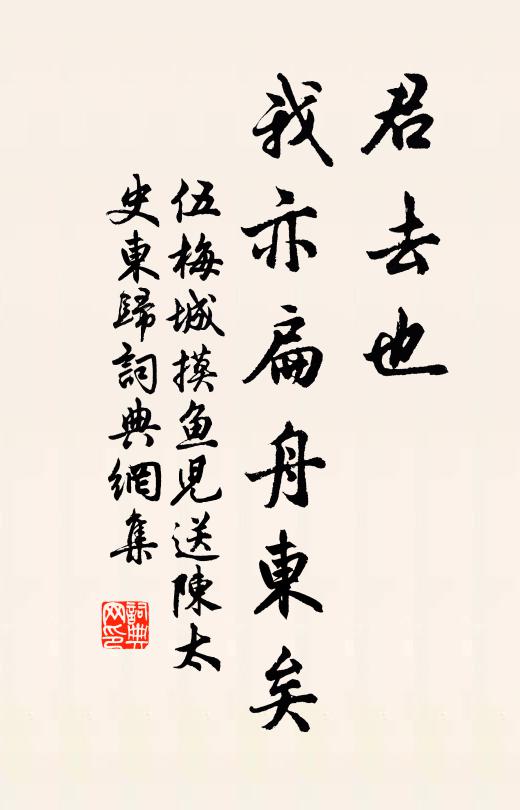 君去也
我亦扁舟東矣
伍梅城摸鱼児送陳太
史東歸詞典網集
詞典
网印